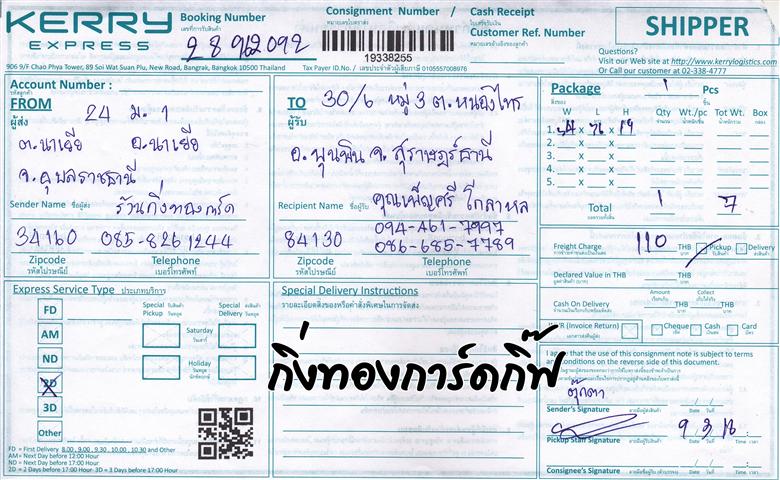 KERRY EXPRESS
Booking Number
เลขที่การรับสินค้า
28962092
Consignment Number /
หมายเลขใบตราส่ง
19338255
Cash Receipt
ใบเสร็จรับเงิน
Customer Ref. Number
หมายเลขอ้างอิงของลูกค้า
SHIPPER
Questions?
Visit our Web site at http://www.kerrylogistics.com
Or Call our customer at 02-338-4777
906 9/F Chao Phya Tower, 89 Soi Wat Suan Plu, New Road, Bangrak, Bangkok 10500 Thailand
Tax Payer ID.No. / เลขประจำตัวผู้เสียภาษี 0105557008976
Account Number :
รหัสลูกค้า
FROM
ผู้ส่ง
24 ม. 1
ต.นาเยีย อ.นาเยีย
จ.อุบลราชธานี
Sender Name ชื่อผู้ส่ง ร้านกิ่งทองการ์ด
34160 085-8261244
Zipcode Telephone
รหัสไปรษณีย์ เบอร์โทรศัพท์
TO
ผู้รับ
30/6 หมู่ 3 ต.หนองไทร
อ.พุนพิน จ.สุราษฎร์ธานี
Recipient Name ชื่อผู้รับ คุณเพ็ญศรี โกลาหล
84130
094-461-7997
086-685-7789
Zipcode Telephone
รหัสไปรษณีย์ เบอร์โทรศัพท์
Package 1 Pcs
สิ่งของ ชิ้น
W L H Qty Wt./pc Tot Wt. Box
จำนวน น้ำหนัก/ชิ้น น้ำหนักรวม กล่อง
1. x x 19
2. x x
3. x x
4. x x
5. x x
Total 1 7
Freight Charge 110 THB Pickup Delivery
Declared Value in THB THB
Amount Collect
Cash On Delivery THB
(Invoice Return) Cheque Cash Card
Express Service Type ประเภทบริการ
FD
AM
ND
2D
3D
Other
Special Pickup
Special Delivery
Saturday
วันเสาร์
Holiday
วันหยุด
FD = First Delivery 8.00, 9.00, 9.30, 10.00, 10.30 and Other
AM = Next Day before 12:00 Hour
ND = Next Day before 17:00 Hour
2D = 2 Days before 17:00 Hour 3D = 3 Days before 17:00 Hour
Special Delivery Instructions
รายละเอียดสิ่งของหรือคำสั่งพิเศษในการจัดส่ง
กิ่งทองการ์ดกิ๊ฟ
I agree that the use of this consignment note is subject to terms
and conditions on the reverse side of this document.
ตุ๊กตา
Sender's Signature ลายมือชื่อผู้ส่งสินค้า Date วันที่
9 3
Pickup Staff Signature Date วันที่ Time เวลา
Consignee's Signature Date วันที่ Time เวลา